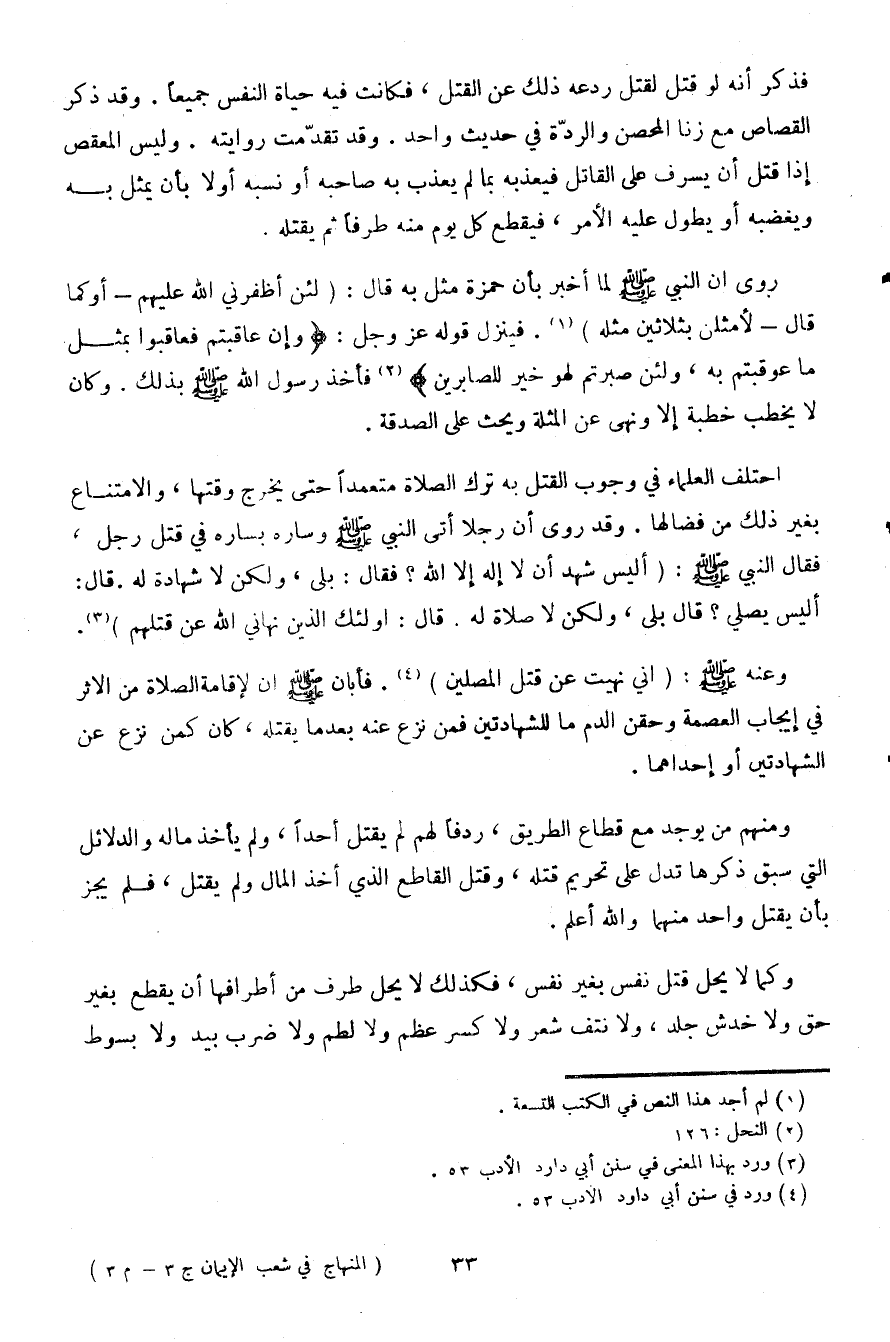 فذكر أنه لو قتل لقتل ردعه ذلك عن القتل ، فكانت فيه حياة النفس جميعاً . وقد ذكر
القصاص مع زنا المحصن والردّة في حديث واحد . وقد تقدّمت روايته . وليس المعقص
إذا قتل أن يسرف على القاتل فيعذبه بما لم يعذب به صاحبه أو نسبه أولا بأن يمثل بــه
ويغضبه أو يطول عليه الأمر ، فيقطع كل يوم منه طرفاً ثم يقتله .
روى ان النبي ﷺ لما أخبر بأن حمزة مثل به قال : ( لئن أظفرني الله عليهم – أوكما
قال – لأمثلن بثلاثين مثله ) (١) . فينزل قوله عز وجل : ﴿ وإن عاقبتم فعاقبوا بمثــل
ما عوقبتم به ، ولئن صبرتم لهو خير للصابرين ﴾ (٢) فأخذ رسول الله ﷺ بذلك . وكان
لا يخطب خطبة إلا ونهى عن المثلة ويحث على الصدقة .
احتلف العلماء في وجوب القتل به ترك الصلاة متعمداً حتى يخرج وقتها ، والامتنــاع
بغير ذلك من فضالها . وقد روى أن رجلا أتى النبي ﷺ وساره بساره في قتل رجل ،
فقال النبي ﷺ : ( أليس شهد أن لا إله إلا الله ؟ فقال : بلى ، ولكن لا شهادة له . قال:
أليس يصلي ؟ قال بلى ، ولكن لا صلاة له . قال : اولئك الذين نهاني الله عن قتلهم )(٣).
وعنه ﷺ : ( اني نهيت عن قتل المصلين ) (٤) . فأبان ﷺ ان لإقامة الصلاة من الاثر
في إيجاب العصمة وحقن الدم ما للشهادتين فمن نزع عنه بعدما يقتله ، كان كمن نزع عن
الشهادتين أو إحداهما .
ومنهم من يوجد مع قطاع الطريق ، ردفاً لهم لم يقتل أحداً ، ولم يأخذ ماله والدلائل
التي سبق ذكرها تدل على تحريم قتله ، وقتل القاطع الذي أخذ المال ولم يقتل ، فــلم يجز
بأن يقتل واحد منهما والله أعلم .
وكما لا يحل قتل نفس بغير نفس ، فكذلك لا يحل طرف من أطرافها أن يقطع بغير
حق ولا خدش جلد ، ولا نتف شعر ولا كسر عظم ولا لطم ولا ضرب بيد ولا بسوط
(١) لم أجد هذا النص في الكتب التسعة .
(٢) النحل : ١٢٦
(٣) ورد بهذا المعنى في سنن أبي دارد الأدب ٥٣ .
(٤) ورد في سنن أبي داود الادب ٥٣ .
٣٣ ( المنهاج في شعب الإيمان ج ٣ – م ٣ )